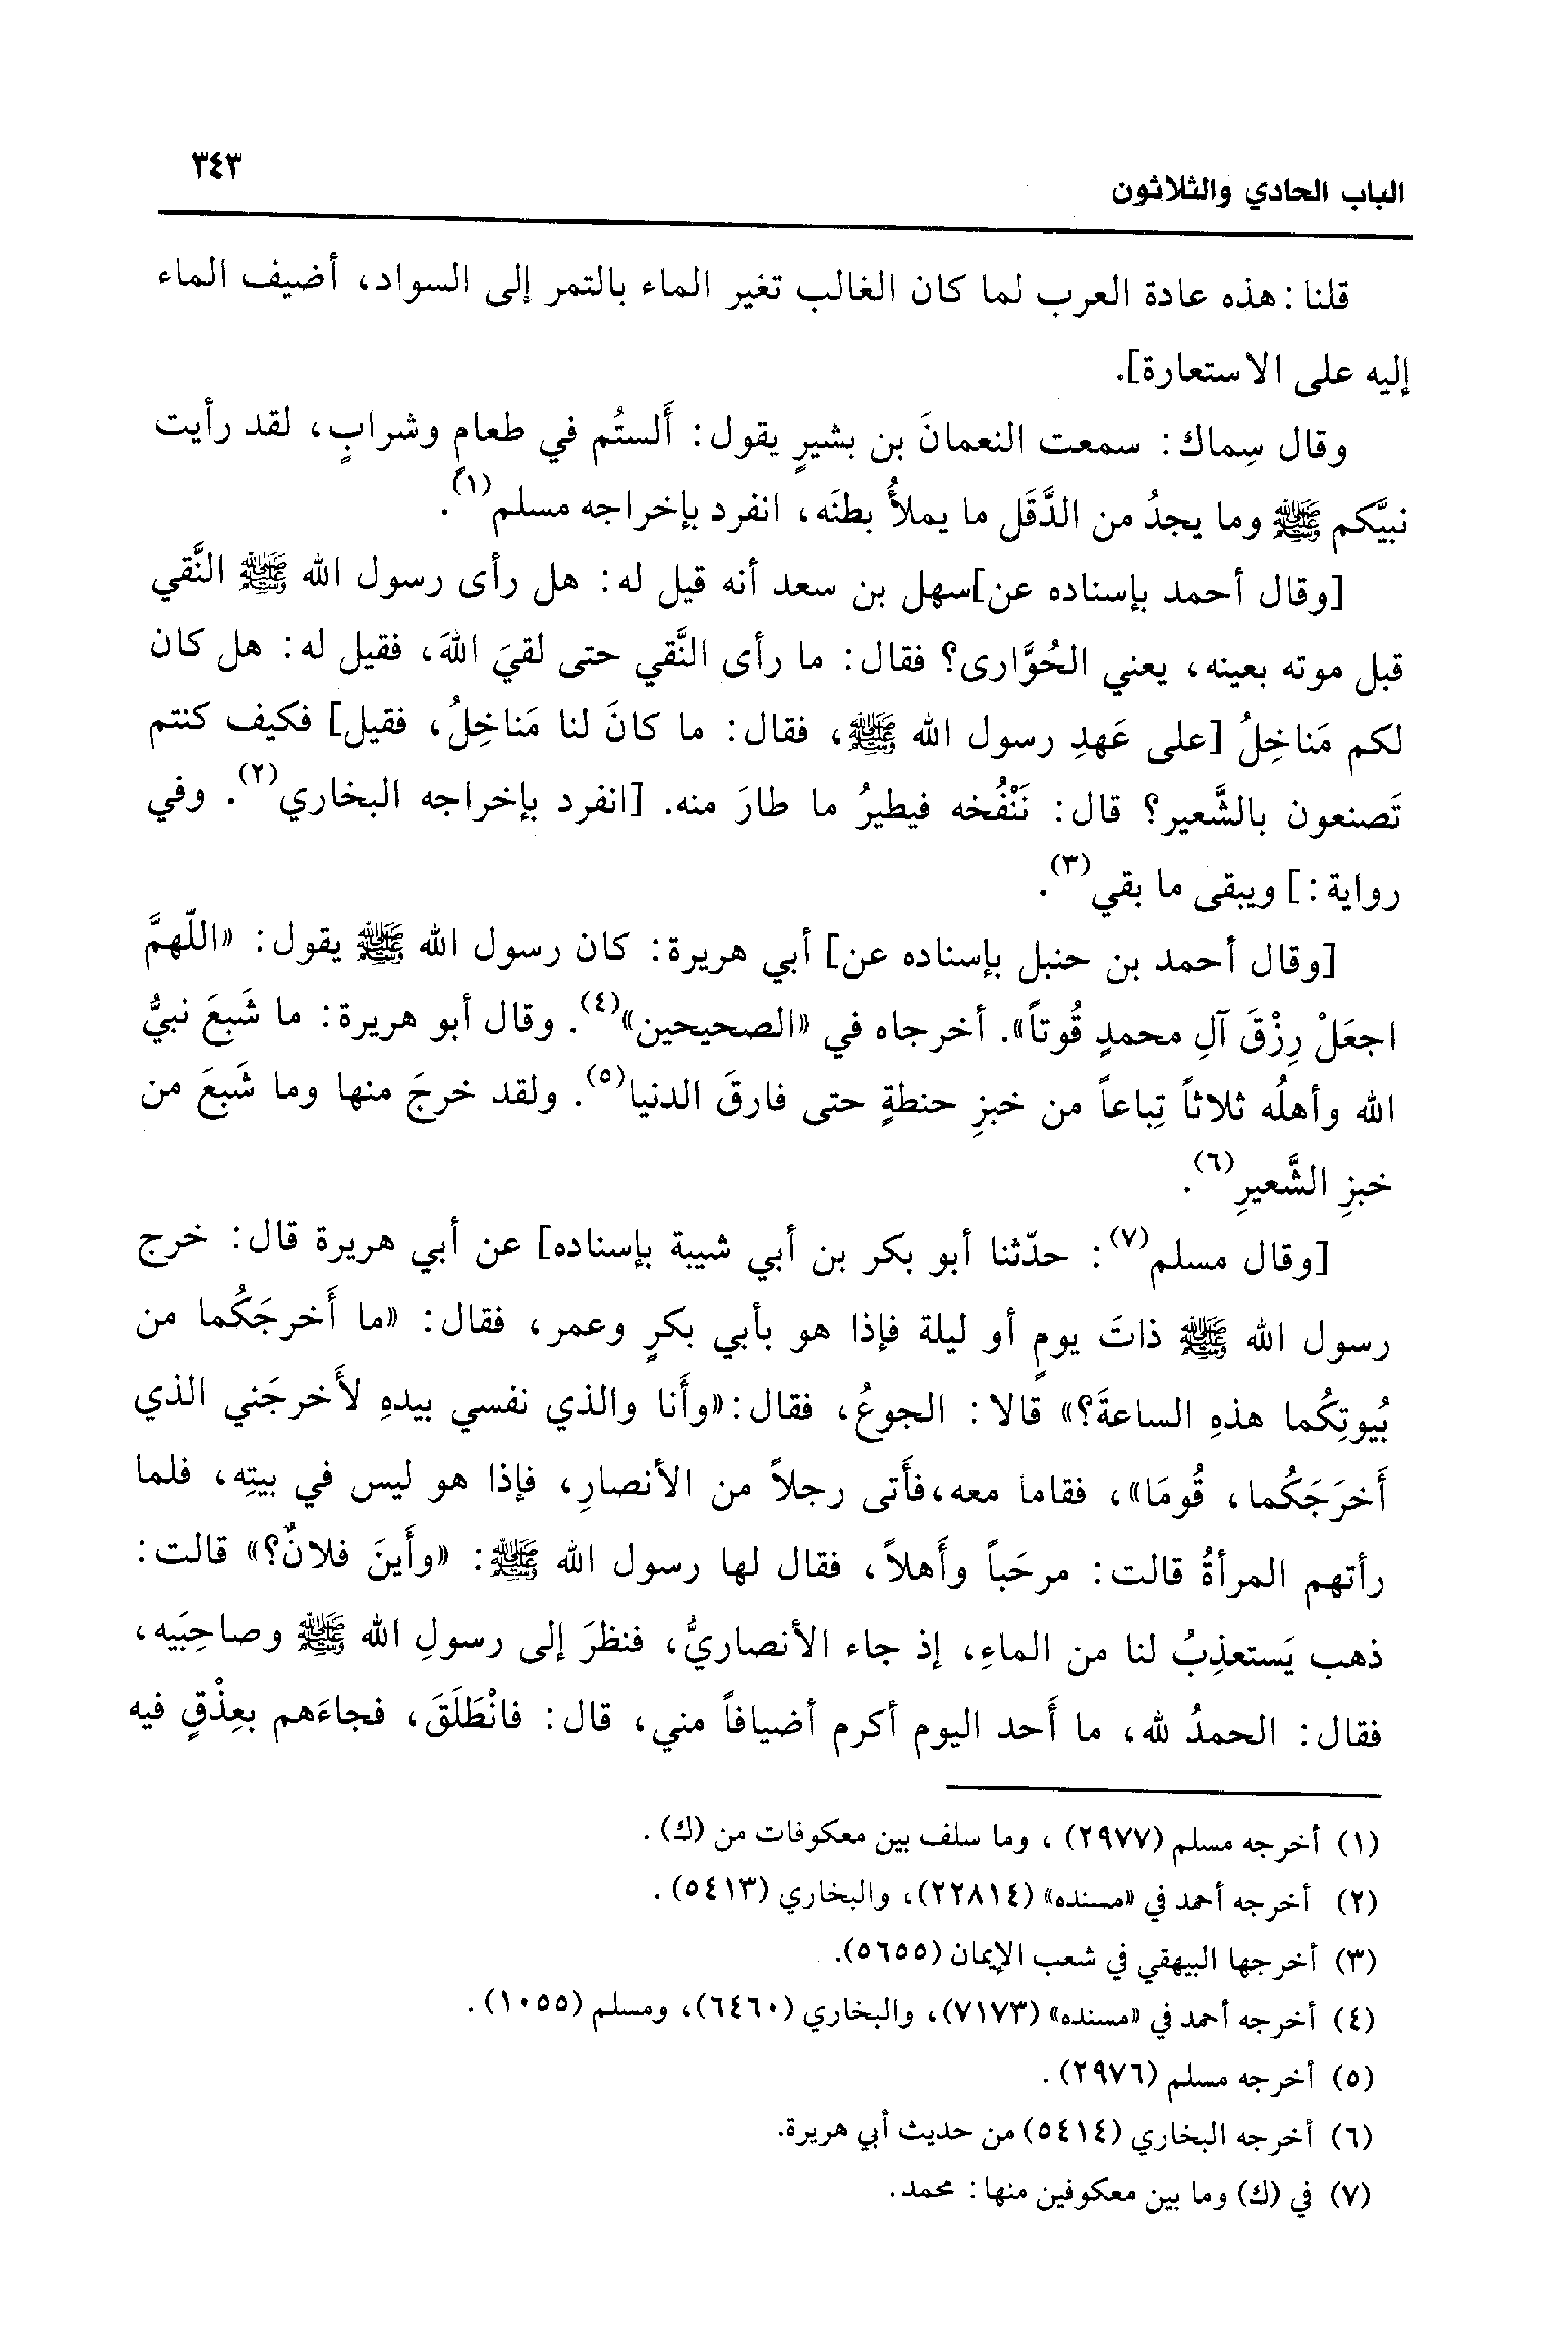 الباب الحادي والثلاثون
٣٤٣
قلنا: هذه عادة العرب لما كان الغالب تغير الماء بالتمر إلى السواد، أضيف الماء
إليه على الاستعارة].
وقال سِماك: سمعت النعمانَ بن بشيرٍ يقول: أَلستُم في طعامٍ وشرابٍ، لقد رأيت
نبيَّكم ﷺ وما يجدُ من الدَّقَل ما يملأُ بطنَه، انفرد بإخراجه مسلم(١).
[وقال أحمد بإسناده عن] سهل بن سعد أنه قيل له: هل رأى رسول الله ﷺ النَّقي
قبل موته بعينه، يعني الحُوَّارى؟ فقال: ما رأى النَّقي حتى لقيَ اللهَ، فقيل له: هل كان
لكم مَناخِلُ [على عَهدِ رسول الله ﷺ، فقال: ما كانَ لنا مَناخِلُ، فقيل] فكيف كنتم
تَصنعون بالشَّعير؟ قال: نَنْفُخه فيطيرُ ما طارَ منه. [انفرد بإخراجه البخاري(٢). وفي
رواية:] ويبقى ما بقي(٣).
[وقال أحمد بن حنبل بإسناده عن] أبي هريرة: كان رسول الله ﷺ يقول: «اللّهمَّ
اجعَلْ رِزْقَ آلِ محمدٍ قُوتاً». أخرجاه في «الصحيحين»(٤). وقال أبو هريرة: ما شَبعَ نبيُّ
الله وأهلُه ثلاثاً تِباعاً من خبزِ حنطةٍ حتى فارقَ الدنيا(٥). ولقد خرجَ منها وما شَبعَ من
خبزِ الشَّعيرِ(٦).
[وقال مسلم(٧): حدّثنا أبو بكر بن أبي شيبة بإسناده] عن أبي هريرة قال: خرج
رسول الله ﷺ ذاتَ يومٍ أو ليلة فإذا هو بأبي بكرٍ وعمر، فقال: «ما أَخرجَكُما من
بُيوتِكُما هذهِ الساعةَ؟» قالا: الجوعُ، فقال: «وأَنا والذي نفسي بيدهِ لأَخرجَني الذي
أَخرَجَكُما، قُومَا»، فقاما معه، فأَتى رجلاً من الأنصارِ، فإذا هو ليس في بيتِه، فلما
رأتهم المرأةُ قالت: مرحَباً وأَهلاً، فقال لها رسول الله ﷺ: «وأَينَ فلانٌ؟» قالت:
ذهب يَستعذِبُ لنا من الماءِ، إذ جاء الأنصاريُّ، فنظرَ إلى رسولِ الله ﷺ وصاحِبَيه،
فقال: الحمدُ لله، ما أَحد اليوم أكرم أضيافاً مني، قال: فانْطَلَقَ، فجاءَهم بعِذْقٍ فيه
(١) أخرجه مسلم (٢٩٧٧)، وما سلف بين معكوفات من (ك).
(٢) أخرجه أحمد في «مسنده» (٢٢٨١٤)، والبخاري (٥٤١٣).
(٣) أخرجها البيهقي في شعب الإيمان (٥٦٥٥).
(٤) أخرجه أحمد في «مسنده» (٧١٧٣)، والبخاري (٦٤٦٠)، ومسلم (١٠٥٥).
(٥) أخرجه مسلم (٢٩٧٦).
(٦) أخرجه البخاري (٥٤١٤) من حديث أبي هريرة.
(٧) في (ك) وما بين معكوفين منها: محمد.